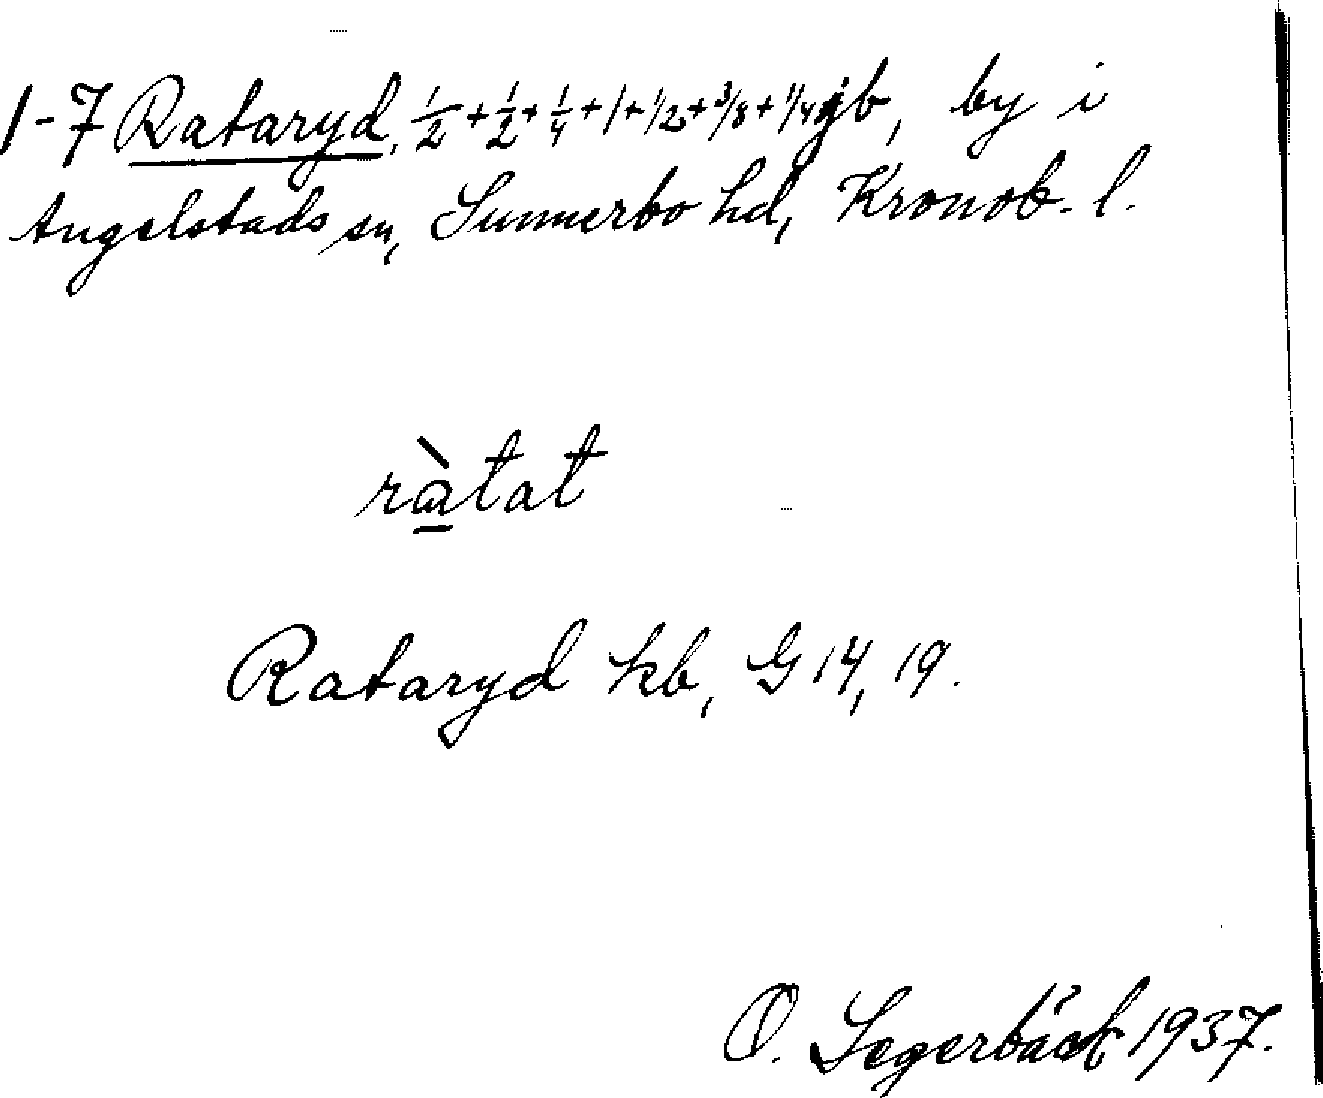 1-7 Rataryd, 1/2+1/2+1/4+1+1/2+3/8+1/4 gb, by i
Angelstads sn, Sunnerbo hd, Kronob. l.
ràtat
Rataryd kb, G 14, 19.
O. Segerbäck 1937.